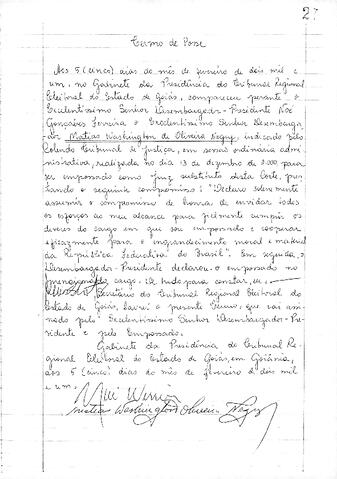 27
Termo de Posse
Aos 5 (cinco) dias do mês de fevereiro de dois mil e
um, no Gabinete da Presidência do Tribunal Regional
Eleitoral do Estado de Goiás, compareceu perante o
Excelentíssimo Senhor Desembargador-Presidente Noé
Gonçalves Ferreira o Excelentíssimo Senhor Desembarga-
dor Matias Washington de Oliveira Negry, indicado pelo
Colendo Tribunal de Justiça, em sessão ordinária admi-
nistrativa, realizada no dia 13 de dezembro de 2.000 para
ser empossado como Juiz substituto desta Corte, pres-
tando o seguinte compromisso: "Declaro solenemente
assumir o compromisso de honra, de envidar todos
os esforços ao meu alcance para fielmente cumprir os
deveres do cargo em que sou empossado e cooperar
eficazmente para o engrandecimento moral e material
da República Federativa do Brasil". Em seguida, o
Desembargador-Presidente declarou o empossado no
mencionado cargo. De tudo para constar, eu,
Secretário do Tribunal Regional Eleitoral do
Estado de Goiás, lavrei o presente Termo, que vai assi-
nado pelo Excelentíssimo Senhor Desembargador-Pre-
sidente e pelo Empossado.
Gabinete da Presidência do Tribunal Re-
gional Eleitoral do Estado de Goiás, em Goiânia,
aos 5 (cinco) dias do mês de fevereiro de dois mil
e um.
Matias Washington Oliveira Negry